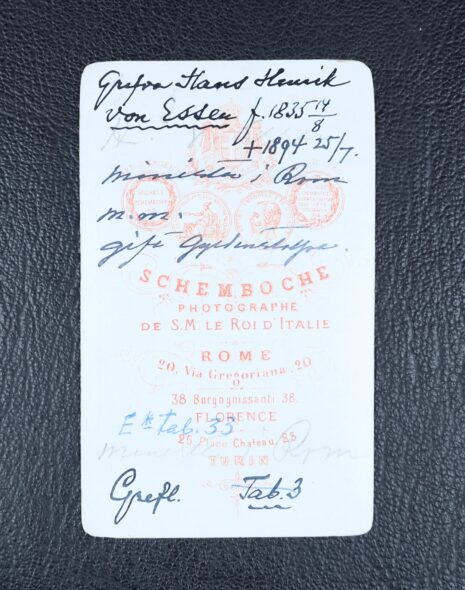 Grefve Hans Henrik
von Essen f. 1835 14/8
+ 1894 25/7.
minister i Rom
m.m.
gift Gyldenstolpe.
SCHEMBOCHE
PHOTOGRAPHE
DE S.M. LE ROI D'ITALIE
ROME
20, Via Gregoriana, 20
38 Borgognissanti 38.
FLORENCE
E tab. 33
25, Place Chateau, 25
minister i Rom
TURIN
Grefl. Tab. 3